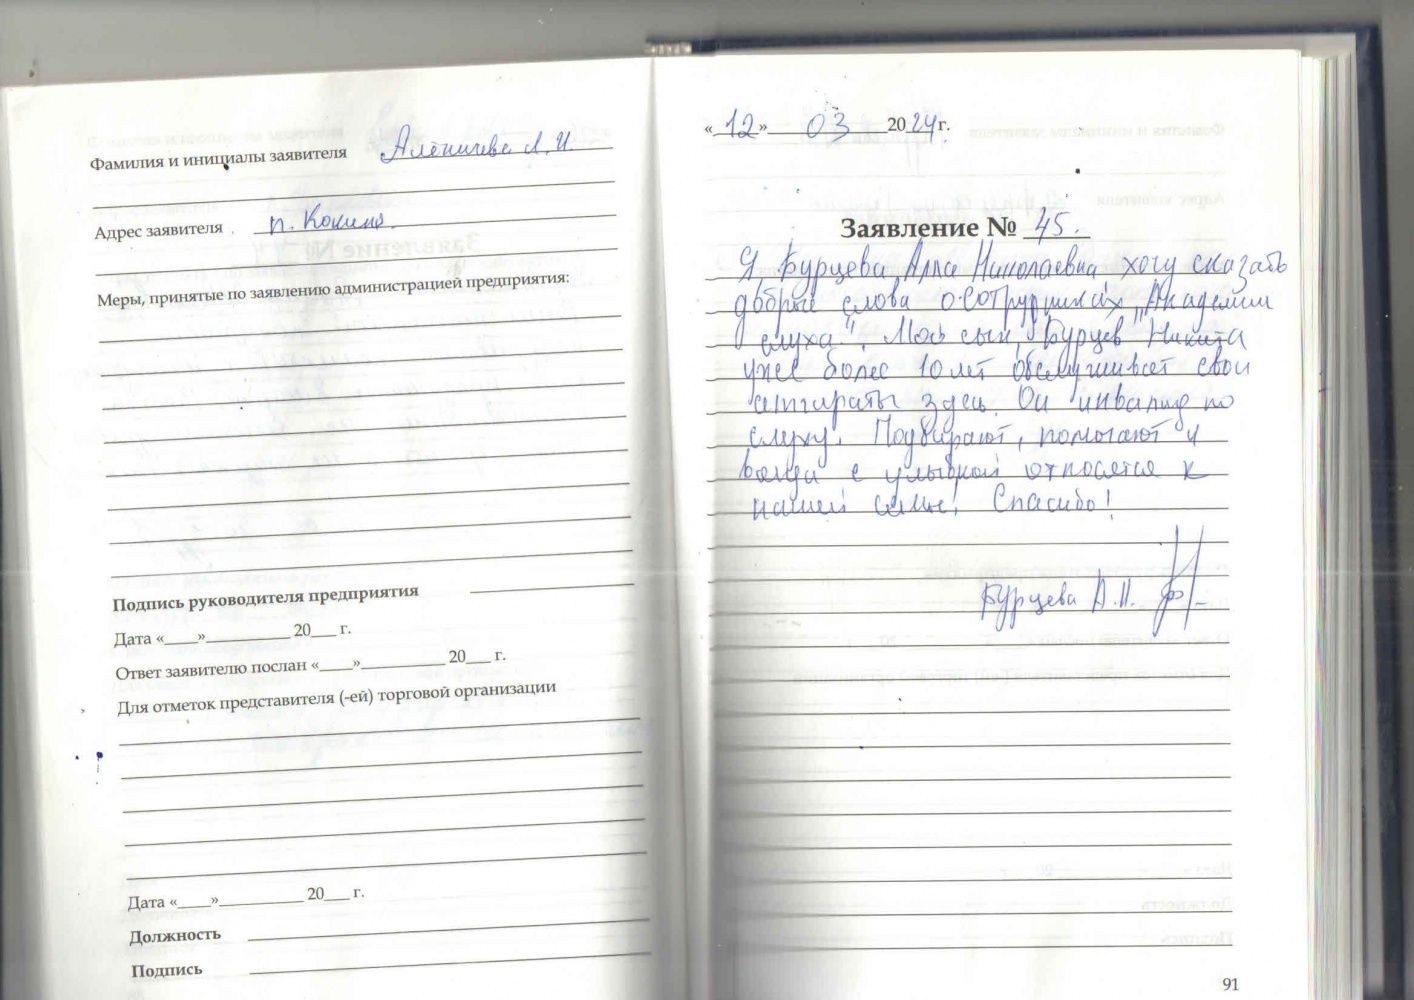 Фамилия и инициалы заявителя Алёничева Л. И.
Адрес заявителя п. Кокино.
Меры, принятые по заявлению администрацией предприятия:
Подпись руководителя предприятия
Дата «___»__________ 20___ г.
Ответ заявителю послан «___»__________ 20___ г.
Для отметок представителя (-ей) торговой организации
Дата «___»__________ 20___ г.
Должность
Подпись
«12» 03 2024 г.
Заявление № 45.
Я, Бурцева Алла Николаевна хочу сказать
добрые слова о сотрудниках "Академии
слуха". Мой сын, Бурцев Никита
уже более 10 лет обслуживает свои
аппараты здесь. Он инвалид по
слуху. Подбирают, помогают и
всегда с улыбкой относятся к
нашей семье! Спасибо!
Бурцева А.Н.
91